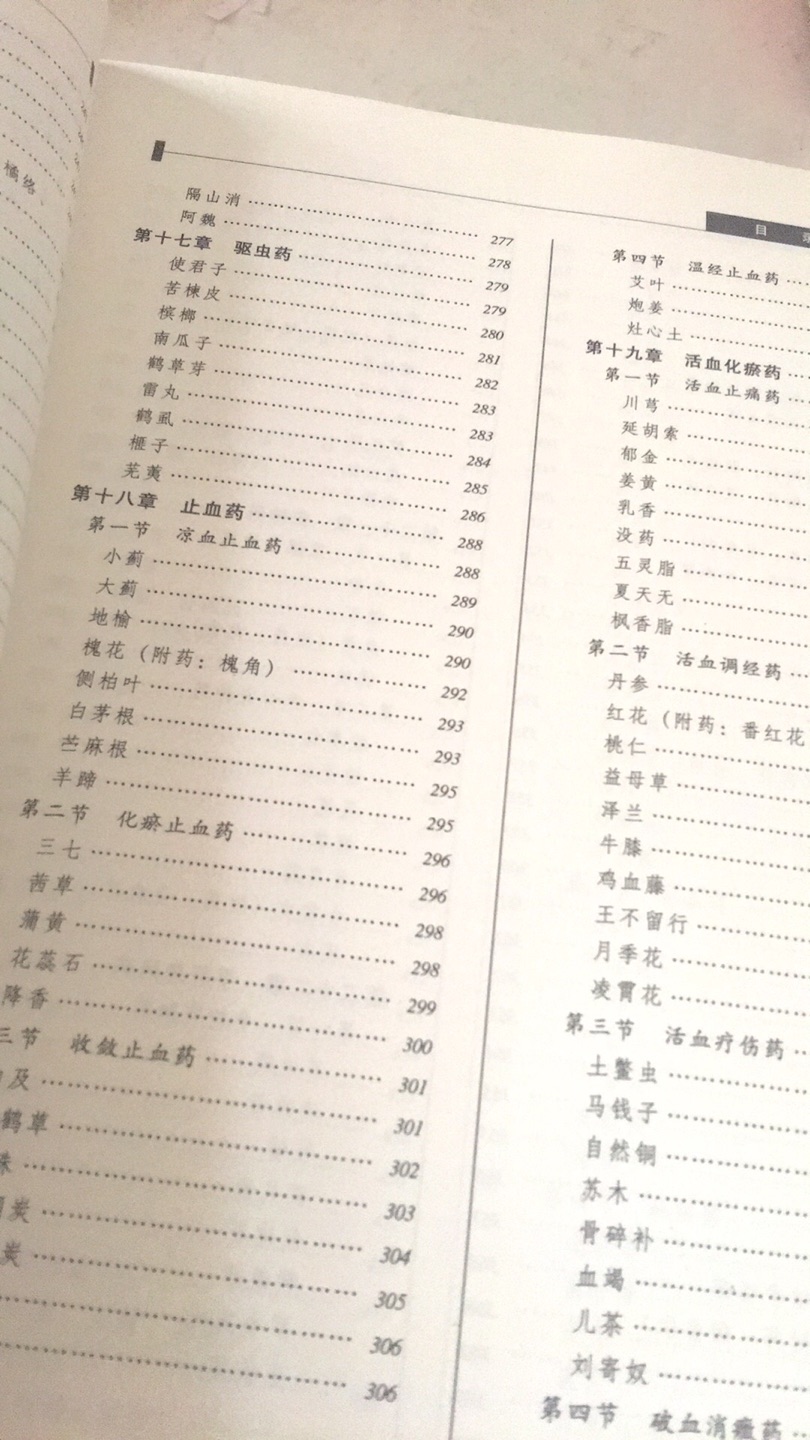 橘络、
目 录
隔山消 …… 277
阿魏 …… 278
第十七章 驱虫药 …… 279
使君子 …… 279
苦楝皮 …… 280
槟榔 …… 281
南瓜子 …… 282
鹤草芽 …… 283
雷丸 …… 283
鹤虱 …… 284
榧子 …… 285
芜荑 …… 286
第十八章 止血药 …… 288
第一节 凉血止血药 …… 288
小蓟 …… 289
大蓟 …… 290
地榆 …… 290
槐花（附药：槐角） …… 292
侧柏叶 …… 293
白茅根 …… 293
苎麻根 …… 295
羊蹄 …… 295
第二节 化瘀止血药 …… 296
三七 …… 296
茜草 …… 298
蒲黄 …… 298
花蕊石 …… 299
降香 …… 300
三节 收敛止血药 …… 301
及 …… 301
鹤草 …… 302
…… 303
炭 …… 304
炭 …… 305
…… 306
…… 306
第四节 温经止血药 ……
艾叶 ……
炮姜 ……
灶心土 ……
第十九章 活血化瘀药 ……
第一节 活血止痛药 ……
川芎 ……
延胡索 ……
郁金 ……
姜黄 ……
乳香 ……
没药 ……
五灵脂 ……
夏天无 ……
枫香脂 ……
第二节 活血调经药 ……
丹参 ……
红花（附药：番红花
桃仁 ……
益母草 ……
泽兰 ……
牛膝 ……
鸡血藤 ……
王不留行 ……
月季花 ……
凌霄花 ……
第三节 活血疗伤药 ……
土鳖虫 ……
马钱子 ……
自然铜 ……
苏木 ……
骨碎补 ……
血竭 ……
儿茶 ……
刘寄奴 ……
第四节 破血消癥药 ……